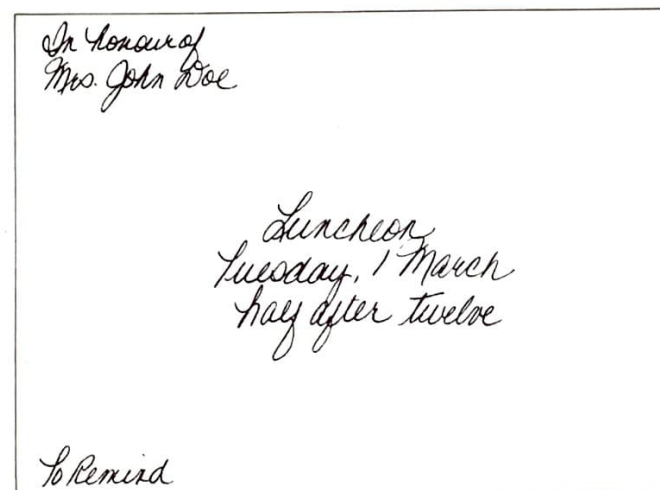 In honour of
Mrs. John Doe
Luncheon
Tuesday, 1 March
half after twelve
To Remind